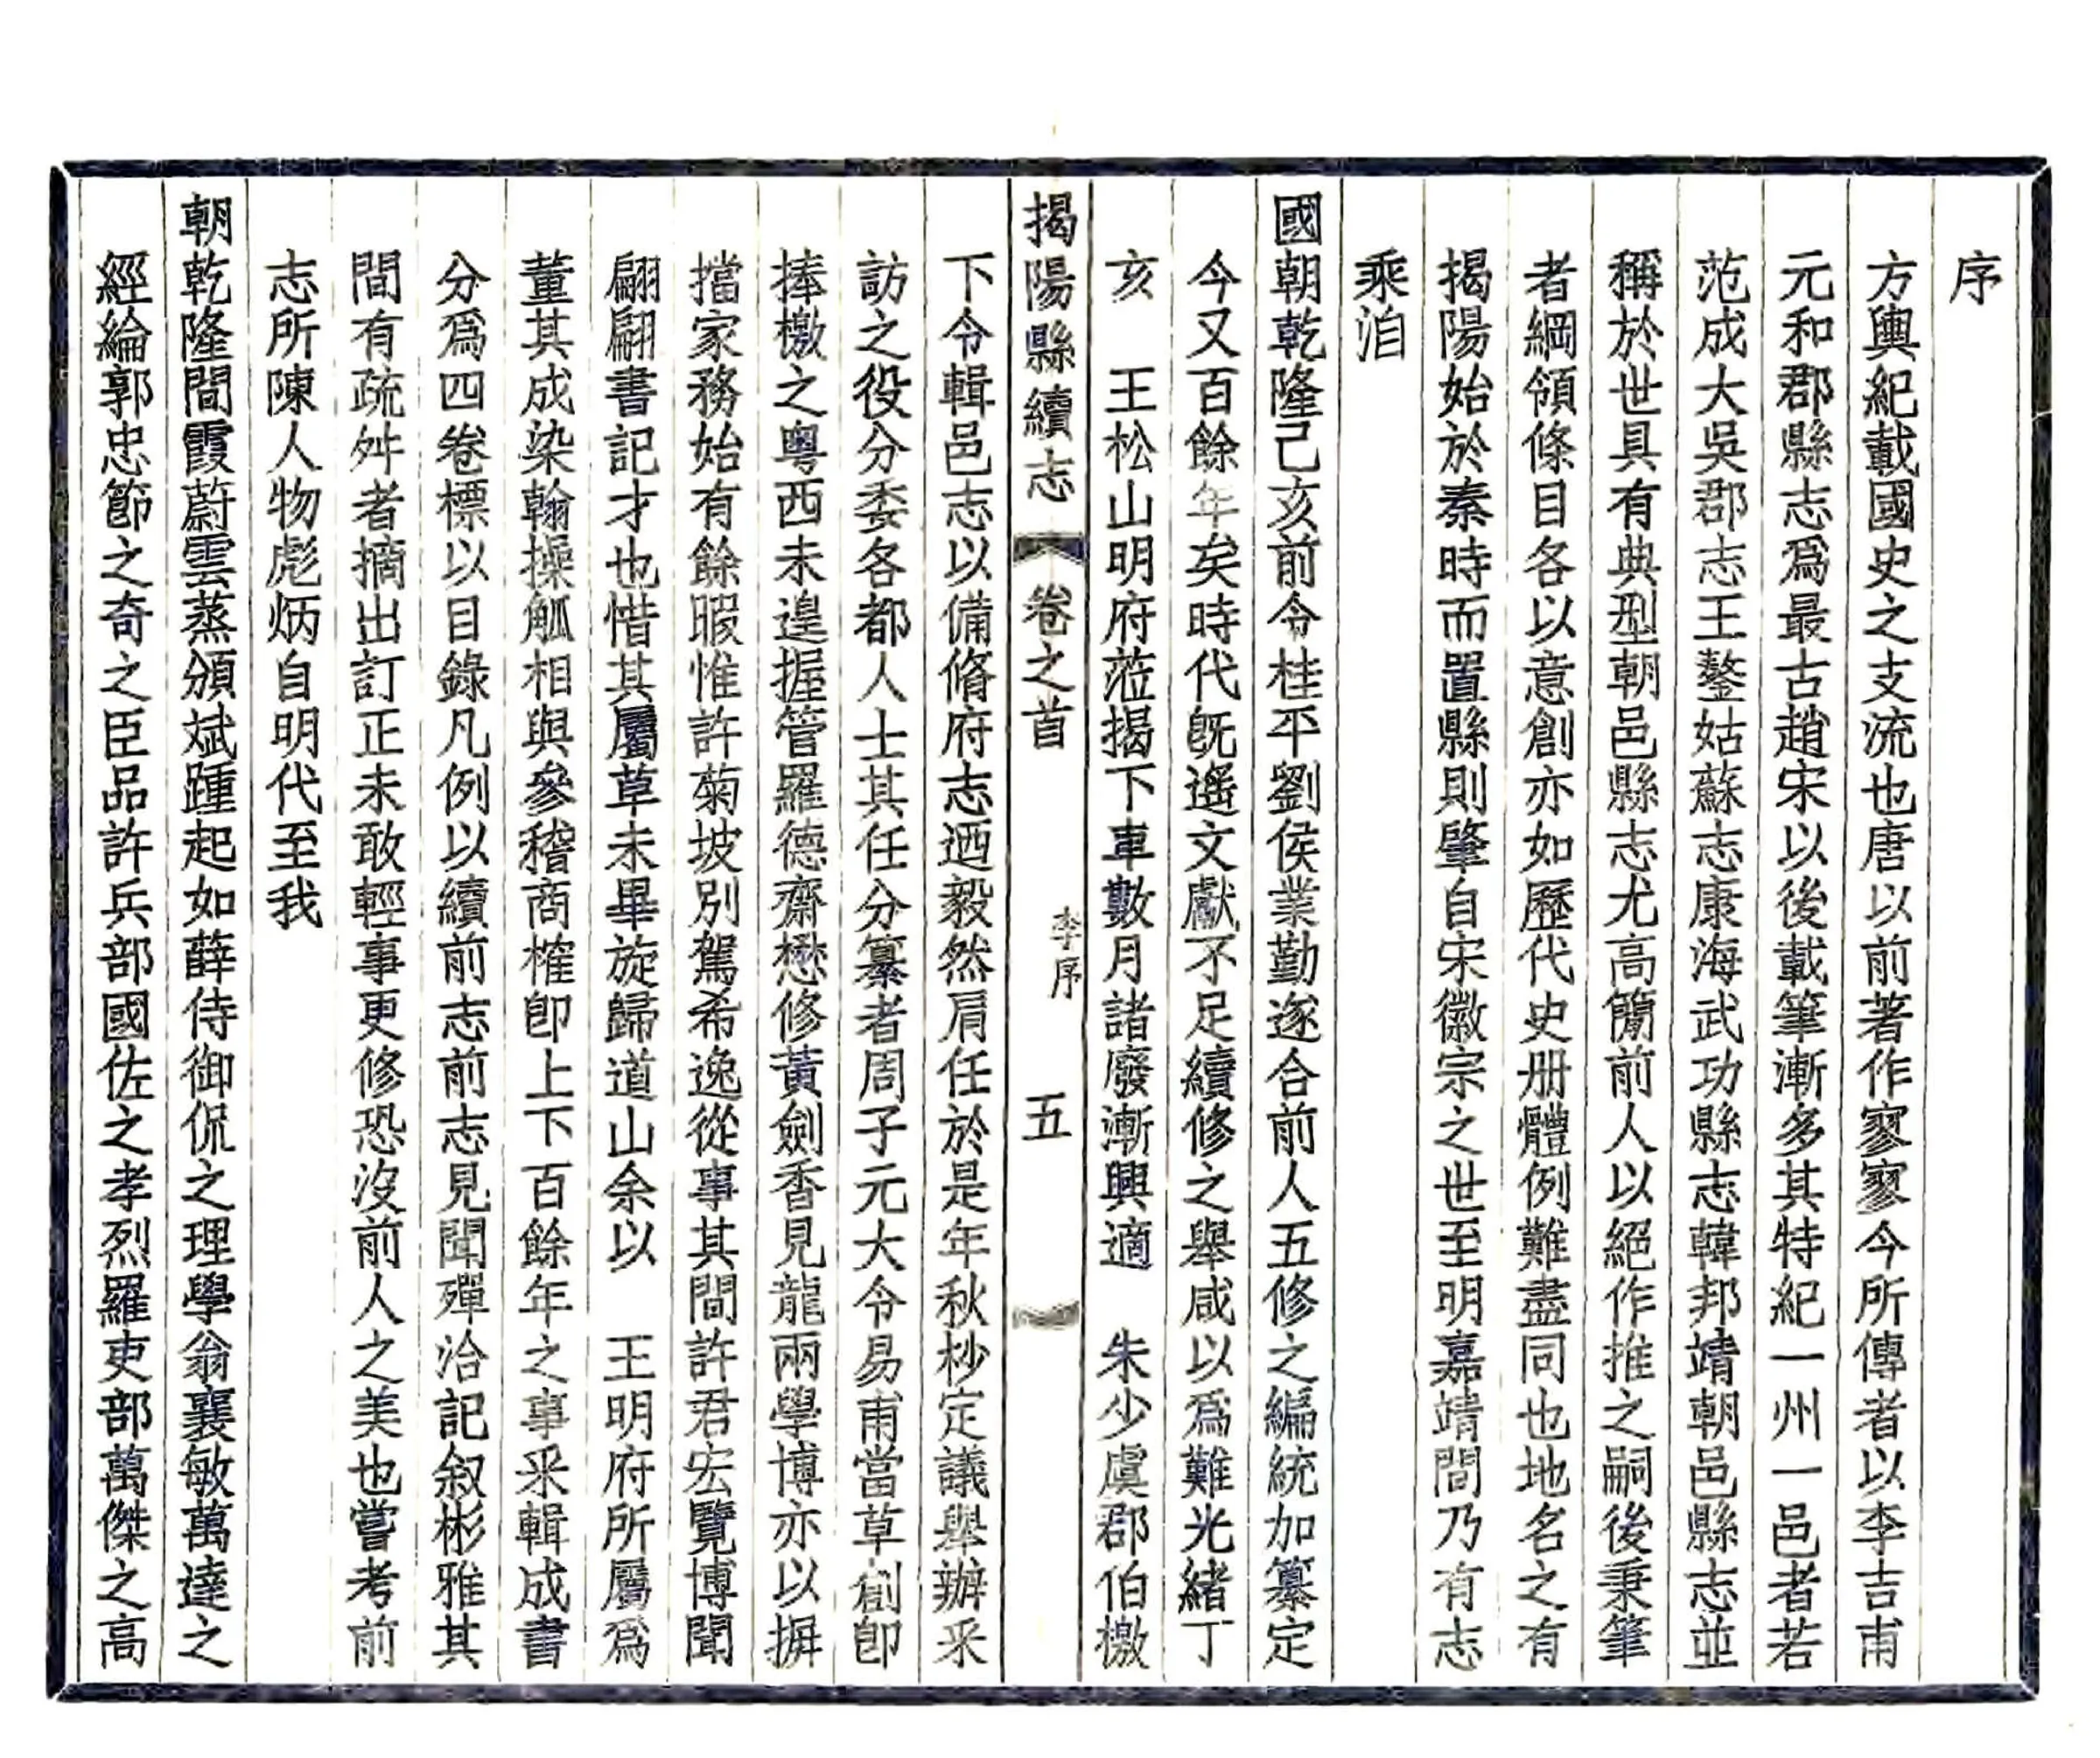 序
方輿紀載國史之支流也唐以前著作寥寥今所傳者以李吉甫
元和郡縣志爲最古趙宋以後載筆漸多其特紀一州一邑者若
范成大吳郡志王鏊姑蘇志康海武功縣志韓邦靖朝邑縣志並
稱於世具有典型朝邑縣志尤高簡前人以絕作推之嗣後秉筆
者綱領條目各以意創亦如歷代史册體例難盡同也地名之有
揭陽始於秦時而置縣則肇自宋徽宗之世至明嘉靖間乃有志
乘洎
國朝乾隆己亥前令桂平劉侯業勤遂合前人五修之編統加纂定
今又百餘年矣時代旣遙文獻不足續修之舉咸以爲難光緒丁
亥 王松山明府蒞揭下車數月諸廢漸興適 朱少虞郡伯檄
揭陽縣續志 卷之首 李序 五
下令輯邑志以備脩府志迺毅然肩任於是年秋杪定議舉辦采
訪之役分委各都人士其任分纂者周子元大令易甫當草創卽
捧檄之粤西未遑握管羅德齋懋修黃劍香見龍兩學博亦以摒
擋家務始有餘暇惟許菊坡別駕希逸從事其間許君宏覽博聞
翩翩書記才也惜其屬草未畢旋歸道山余以 王明府所屬爲
董其成染翰操觚相與參稽商榷卽上下百餘年之事采輯成書
分爲四卷標以目錄凡例以續前志前志見聞殫洽記叙彬雅其
間有疏舛者摘出訂正未敢輕事更修恐沒前人之美也嘗考前
志所陳人物彪炳自明代至我
朝乾隆間霞蔚雲蒸頒斌踵起如薛侍御侃之理學翁襄敏萬達之
經綸郭忠節之奇之臣品許兵部國佐之孝烈羅吏部萬傑之高